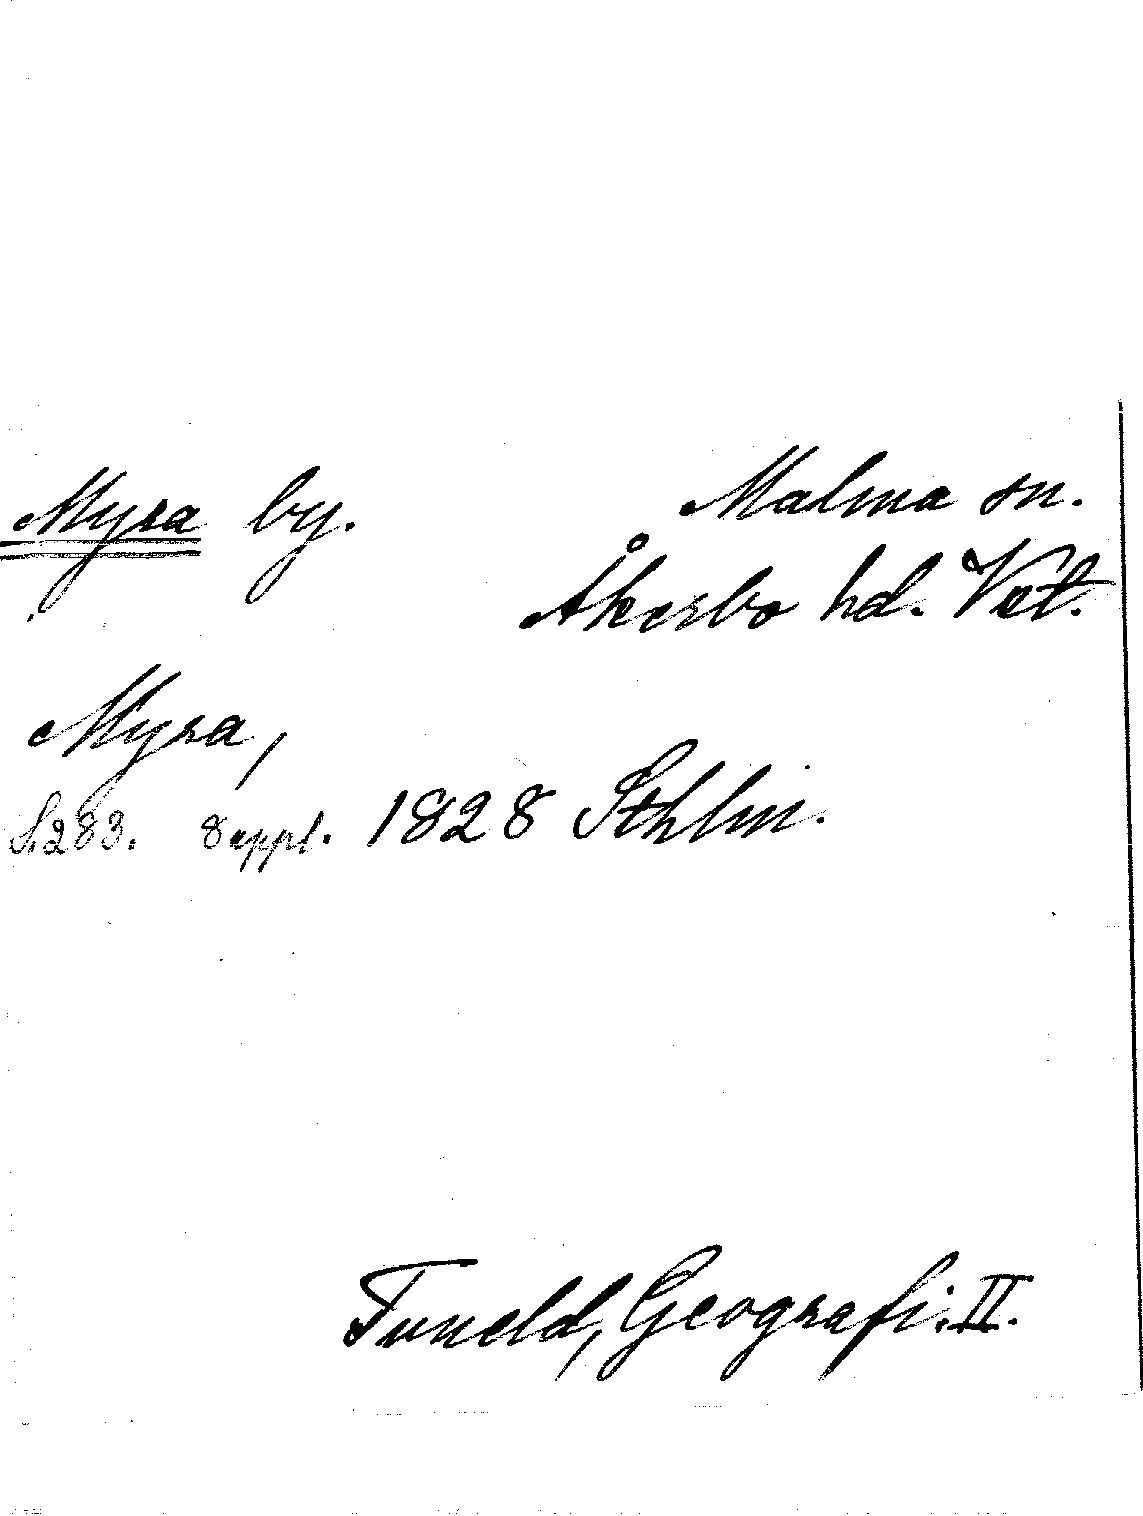 Myra by. Malma sn.
Åkerbo hd.
Myra,
S. 283. 8 uppl. 1828 Sthlm.
Tuneld, Geografi. II.